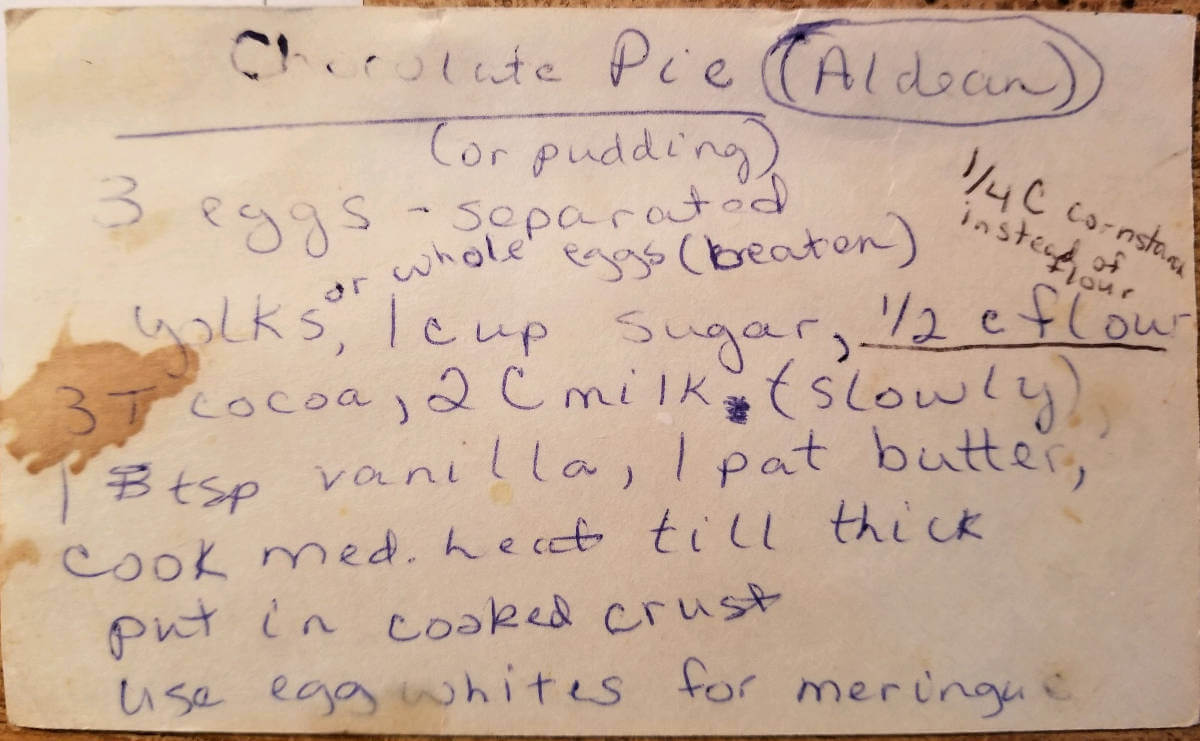 Chocolate Pie (Aldean)
(or pudding)
3 eggs - separated
or whole eggs (beaten)
1/4 C cornstarch
instead of
flour
yolks, 1 cup sugar, 1/2 c flour
3T cocoa, 2 C milk (slowly),
1 tsp vanilla, 1 pat butter,
cook med. heat till thick
put in cooked crust
use egg whites for meringue